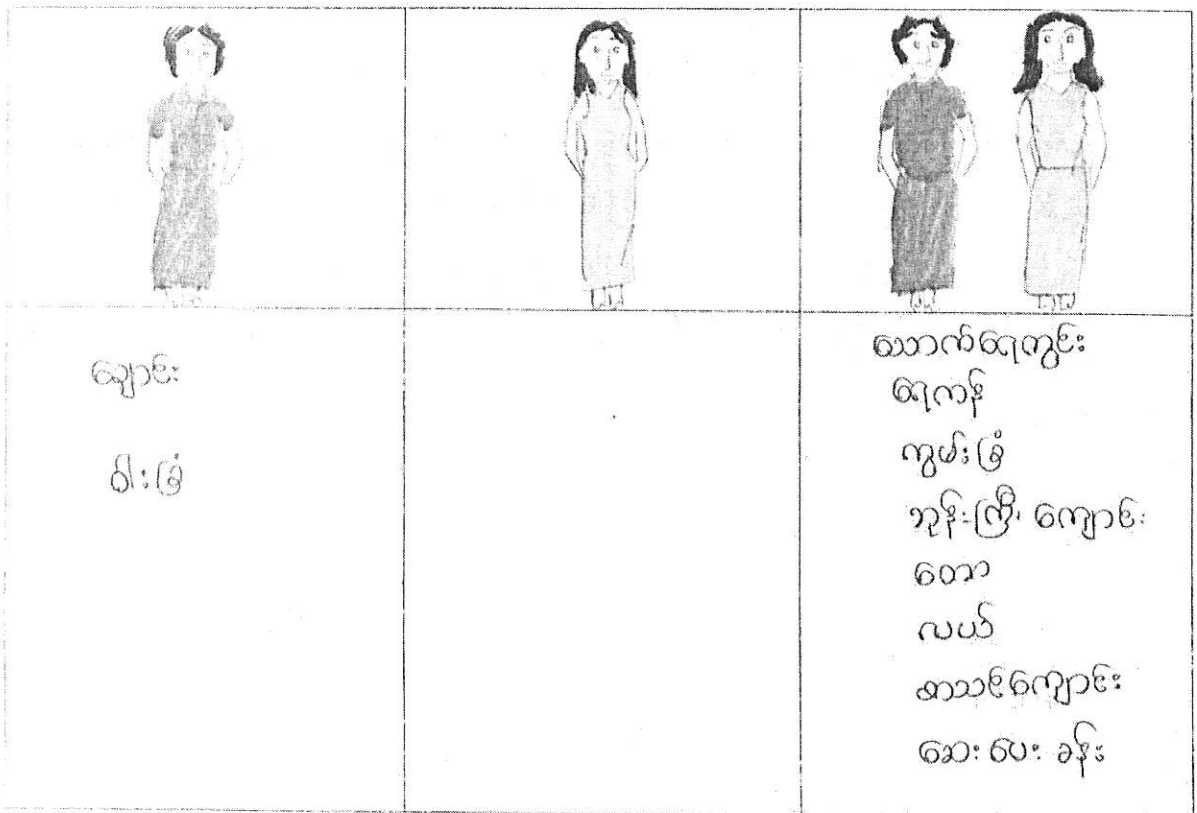 ချောင်း
ဝါးခြံ
သောက်ရေတွင်း
ရေကန်
ကွမ်းခြံ
ဘုန်းကြီး ကျောင်း
တော
လယ်
စာသင်ကျောင်း
ဆေး ပေး ခန်း